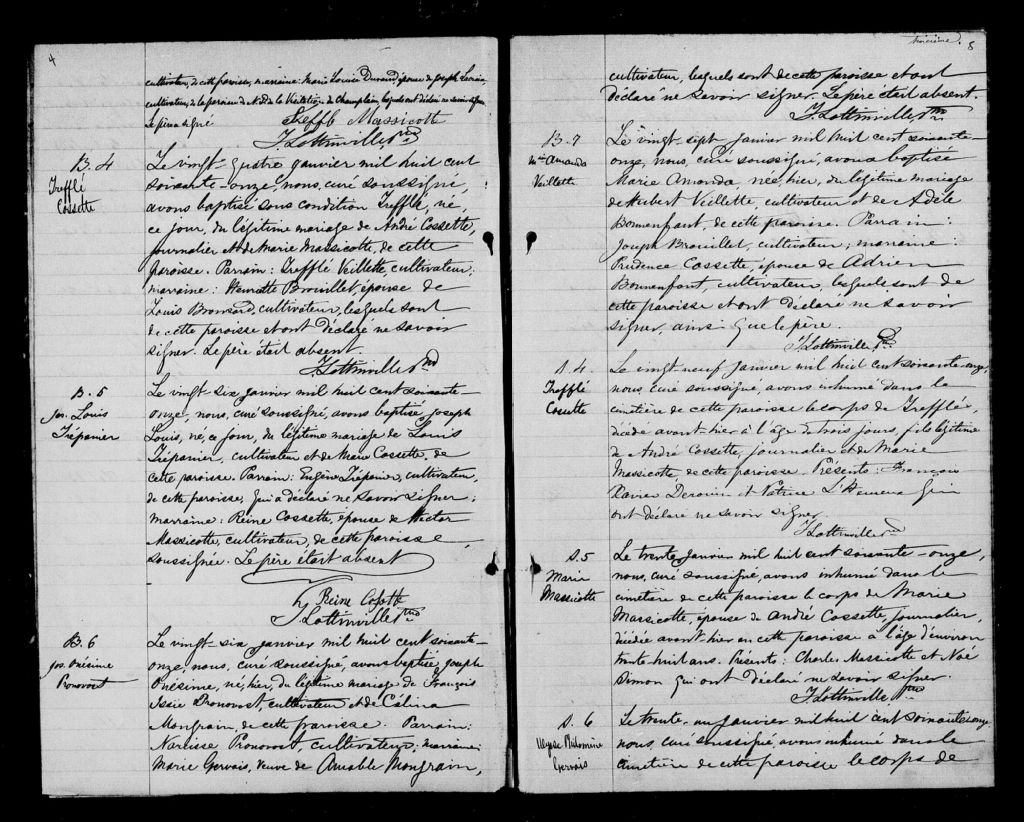 4
cultivateur, de cette paroisse, marraine: Marie Louise Durand, épouse de Joseph Lorrain
cultivateur, de la paroisse de N.D. de la Visitation de Champlain, lesquels ont déclaré ne savoir signer.
Le père a signé
Treffle Massicotte
J. Lottinville Ptre
B. 4
Trefflé
Cossette
Le vingt quatre janvier mil huit cent
soixante-onze, nous, curé soussigné,
avons baptisé sous condition Trefflé, né,
ce jour, du légitime mariage de André Cossette,
journalier et de Marie Massicotte, de cette
paroisse. Parrain: Trefflé Veillette, cultivateur;
marraine: Henriette Brouillet épouse de
Louis Bronsard, cultivateur, lesquels sont
de cette paroisse et ont déclaré ne savoir
signer. Le père était absent.
J. Lottinville Ptre
B. 5
Jos. Louis
Trépanier
Le vingt-six janvier mil huit cent soixante-
onze, nous, curé soussigné, avons baptisé Joseph
Louis, né, ce jour, du légitime mariage de Louis
Trépanier, cultivateur et de Marie Cossette, de
cette paroisse. Parrain: Eugène Trépanier, cultivateur,
de cette paroisse, qui a déclaré ne savoir signer;
marraine: Reine Cossette, épouse de Hector
Massicotte, cultivateur, de cette paroisse,
soussignée. Le père était absent
Reine Cosette
J. Lottinville Ptre
B. 6
Jos. Onésime
Pronovost
Le vingt six janvier mil huit cent soixante-
onze, nous, curé soussigné, avons baptisé Joseph
Onésime, né, hier, du légitime mariage de François
Issie Pronovost, cultivateur et de Célina
Mongrain, de cette paroisse. Parrain:
Narcisse Pronovost, cultivateur; marraine:
Marie Gervais, veuve de Amable Mongrain,
troisième. 8
cultivateur, lesquels sont de cette paroisse et ont
déclaré ne savoir signer. Le père était absent.
J. Lottinville Ptre
B. 7
Mie Amanda
Veillette
Le vingt-sept janvier mil huit cent soixante-
onze, nous, curé soussigné, avons baptisé
Marie Amanda, née, hier, du légitime mariage
de Hubert Veillette, cultivateur et de Adèle
Bonnenfant, de cette paroisse. Parrain:
Joseph Brouillet, cultivateur; marraine:
Prudence Cossette, épouse de Adrien
Bonnenfant, cultivateur, lesquels sont de
cette paroisse et ont déclaré ne savoir
signer, ainsi que le père.
J. Lottinville Ptre
S. 4.
Trefflé
Cossette
Le vingt neuf janvier mil huit cent soixante-onze,
nous, curé soussigné, avons inhumé dans le
cimetière de cette paroisse le corps de Trefflé,
décédé avant-hier à l'âge de trois jours, fils légitime
de André Cossette, journalier et de Marie
Massicotte, de cette paroisse. Présents: François
Xavier Derouin et Patrice L'Heureux qui
ont déclaré ne savoir signer.
J. Lottinville Ptre
S. 5
Marie
Massicotte
Le trente janvier mil huit cent soixante-onze,
nous, curé soussigné, avons inhumé dans le
cimetière de cette paroisse le corps de Marie
Massicotte, épouse de André Cossette, journalier,
décédée avant-hier en cette paroisse à l'âge d'environ
trente huit ans. Présents: Charles Massicotte et Noé
Simon qui ont déclaré ne savoir signer.
J. Lottinville Ptre
S. 6
Philomène
Gervais
Le trente-un janvier mil huit cent soixante onze,
nous, curé soussigné, avons inhumé dans le
cimetière de cette paroisse le corps de